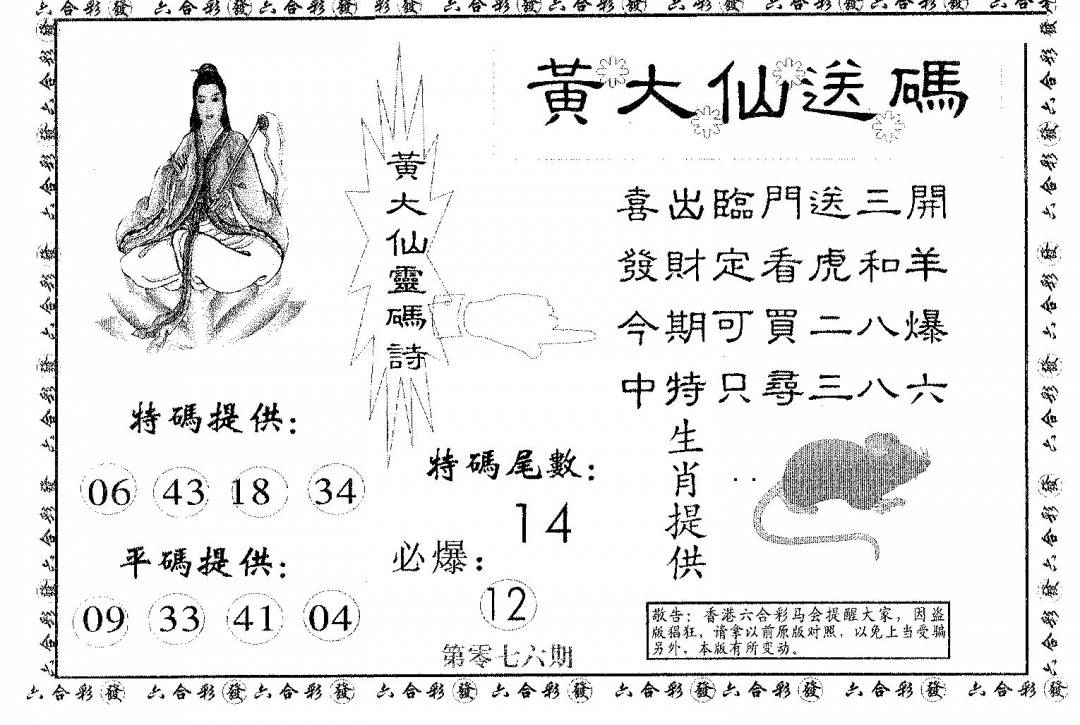 六合彩發 六合彩發六合彩發 六合彩發六合彩發 六合彩發六合彩發六合彩
黃大仙送碼
黃大仙靈碼詩
喜出臨門送三開
發財定看虎和羊
今期可買二八爆
中特只尋三八六
特碼提供：
06 43 18 34
平碼提供：
09 33 41 04
特碼尾數：
14
必爆：
12
第零七六期
生肖提供
敬告：香港六合彩马会提醒大家，因盗
版猖狂，请拿以前原版对照，以免上当受骗
另外，本版有所变动。
六合彩發 六合彩發六合彩發 六合彩發六合彩發 六合彩發六合彩發 六合彩發 六合彩發